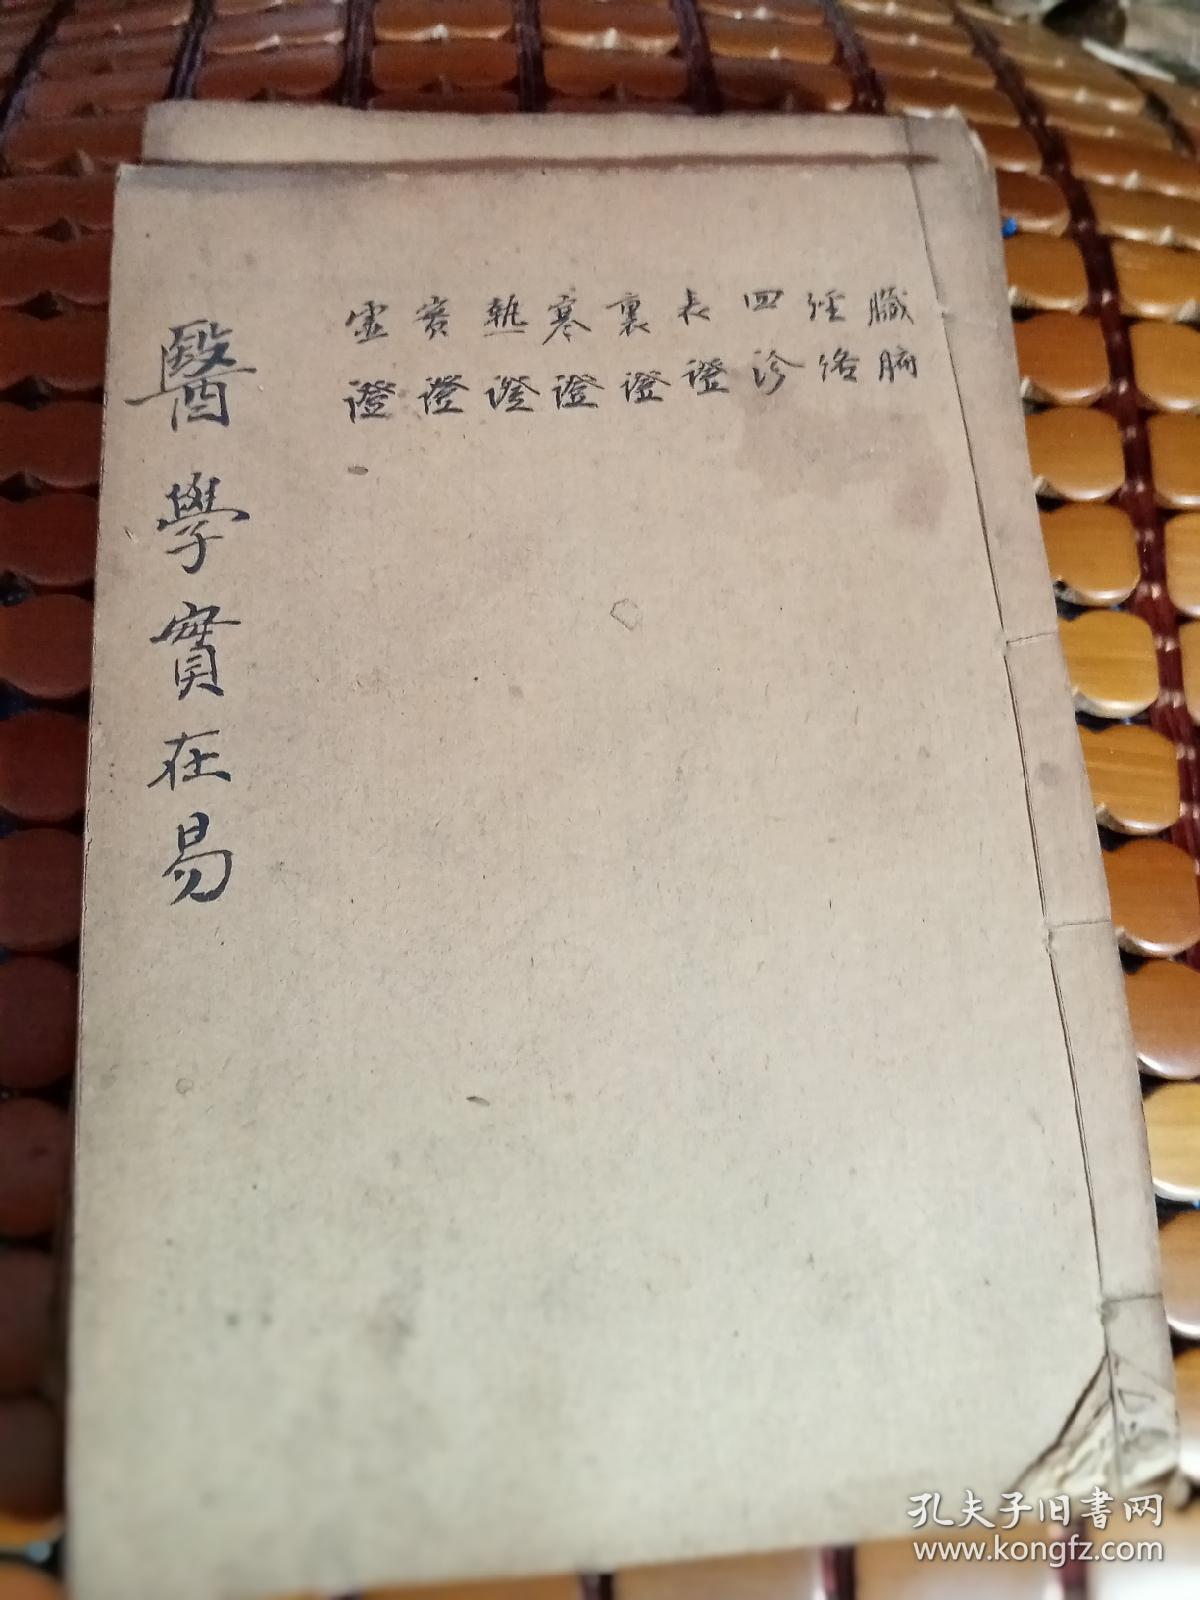 臟腑
經絡
四診
表證
裏證
寒證
熱證
實證
虛證
醫學實在易
孔夫子旧书网
www.kongfz.com